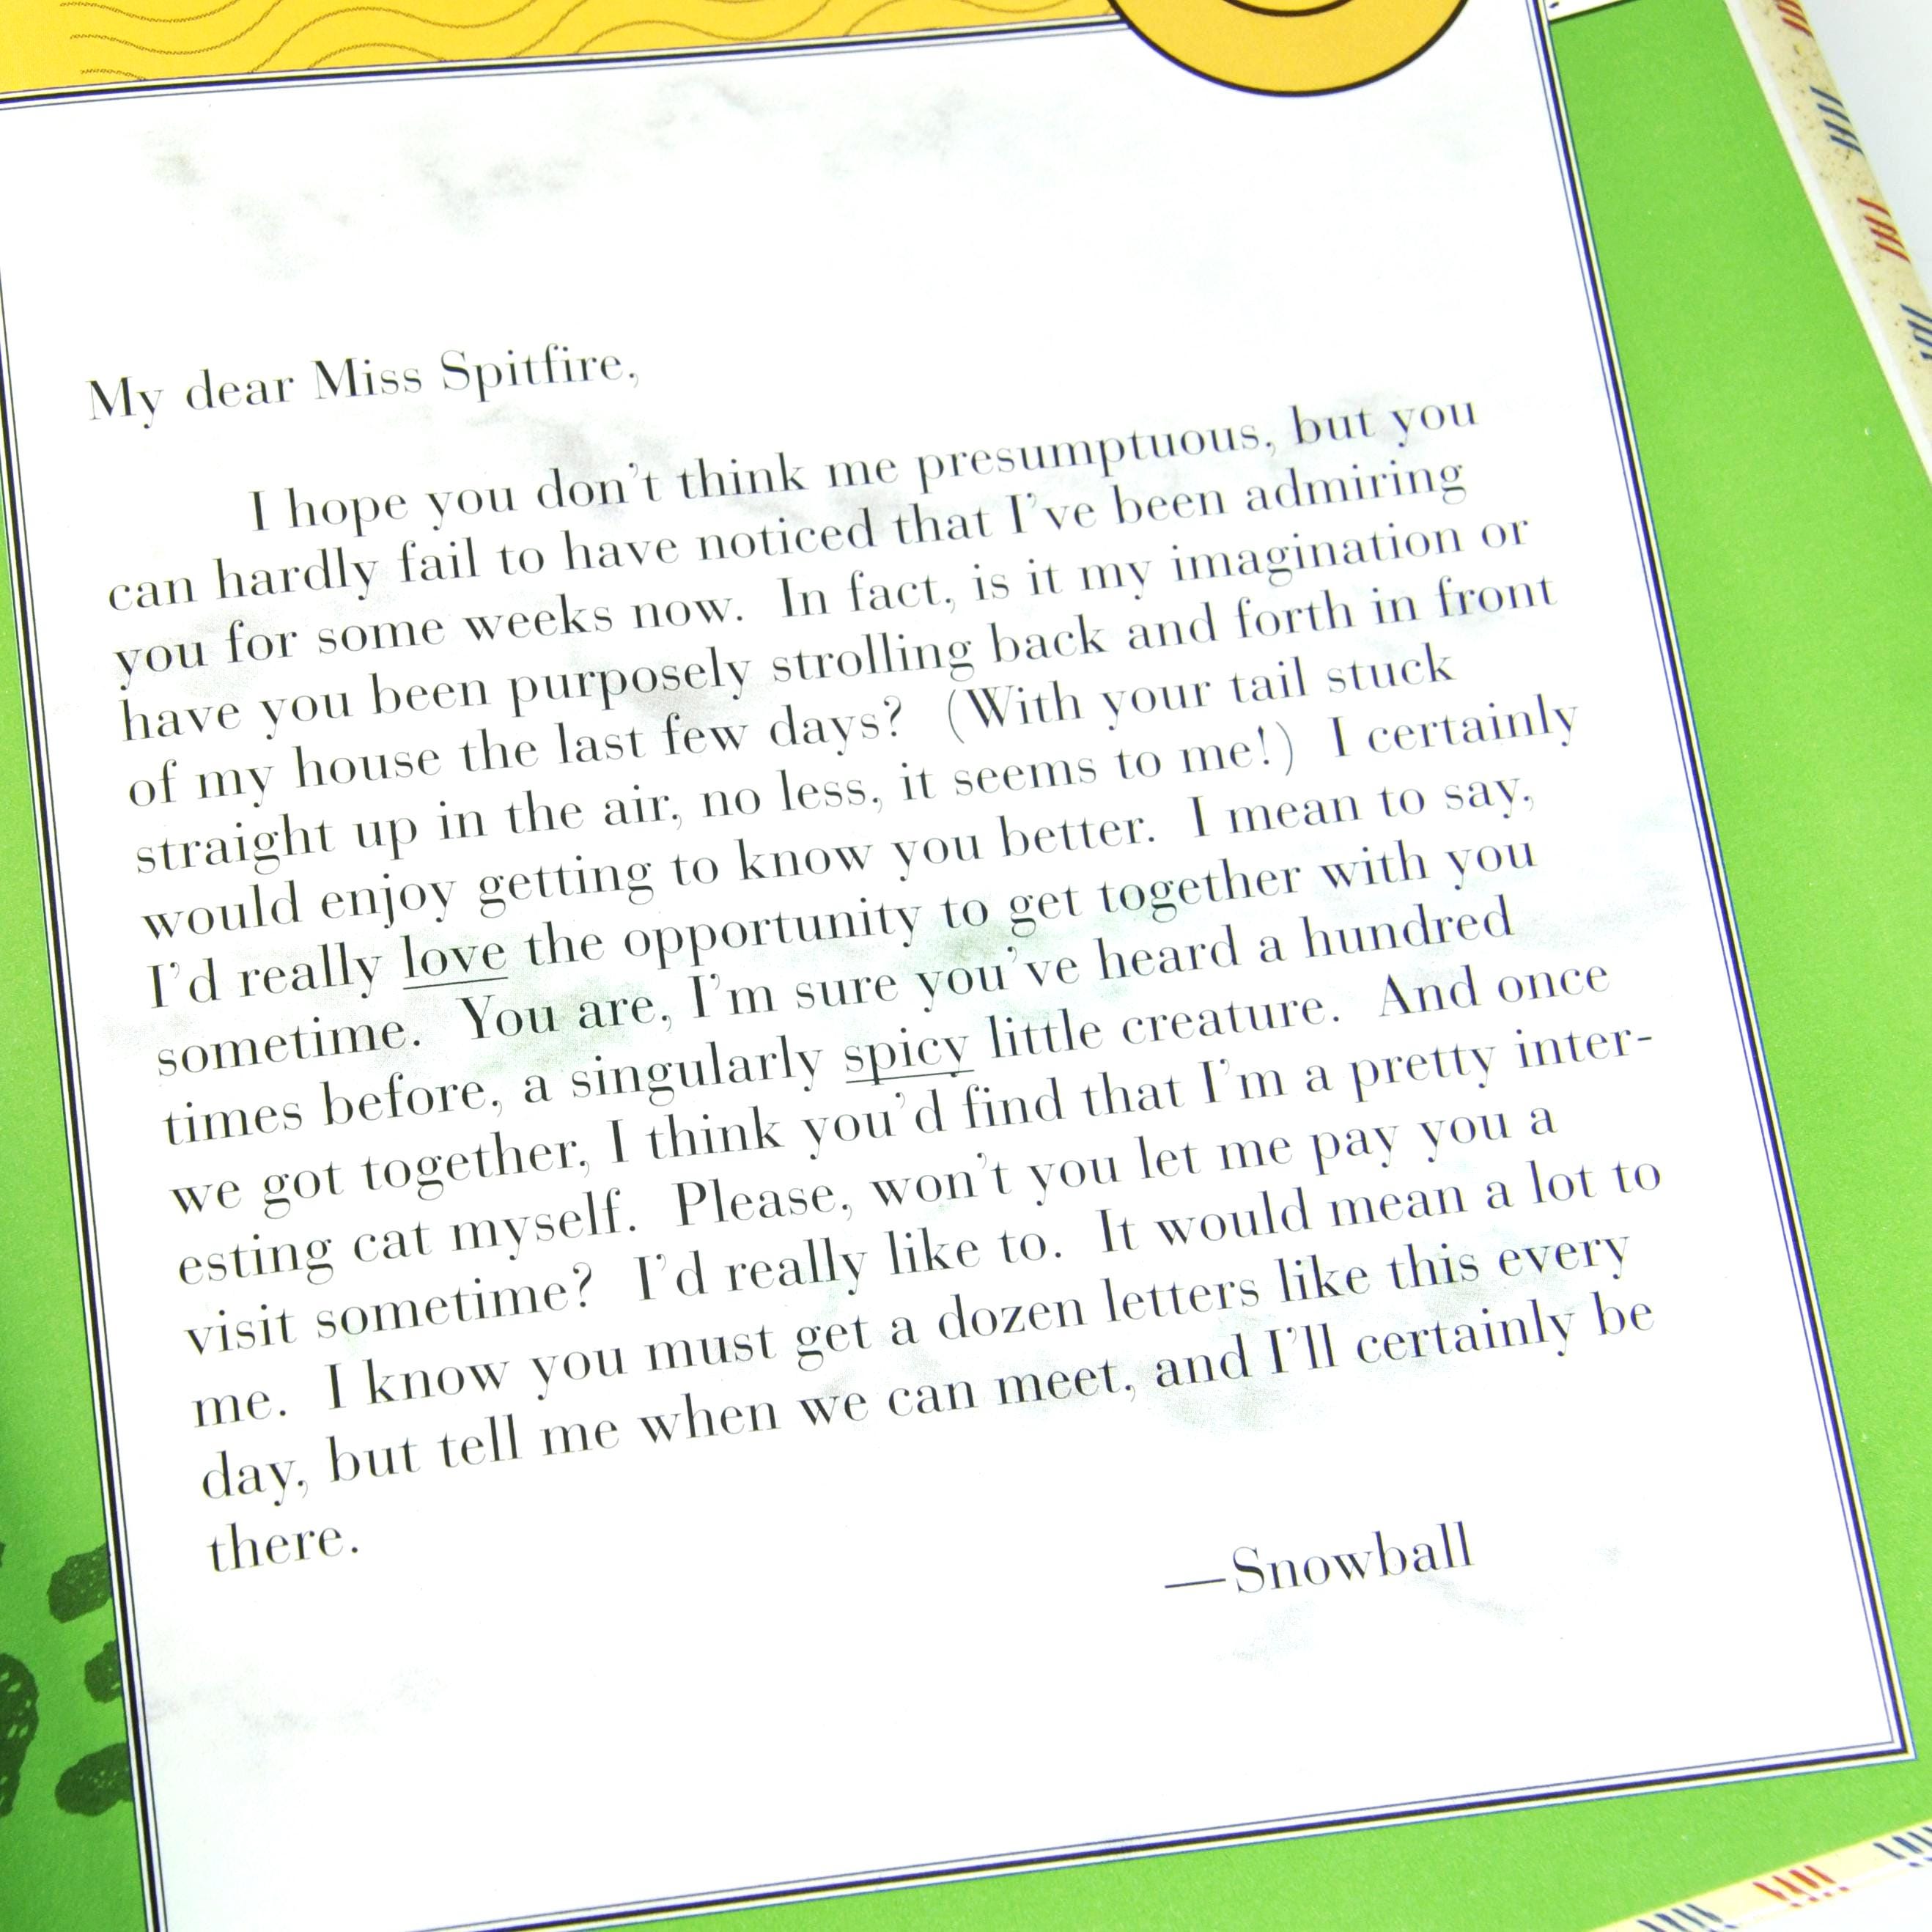 My dear Miss Spitfire,
I hope you don't think me presumptuous, but you
can hardly fail to have noticed that I've been admiring
you for some weeks now. In fact, is it my imagination or
have you been purposely strolling back and forth in front
of my house the last few days? (With your tail stuck
straight up in the air, no less, it seems to me!) I certainly
would enjoy getting to know you better. I mean to say,
I'd really love the opportunity to get together with you
sometime. You are, I'm sure you've heard a hundred
times before, a singularly spicy little creature. And once
we got together, I think you'd find that I'm a pretty inter-
esting cat myself. Please, won't you let me pay you a
visit sometime? I'd really like to. It would mean a lot to
me. I know you must get a dozen letters like this every
day, but tell me when we can meet, and I'll certainly be
there.
—Snowball